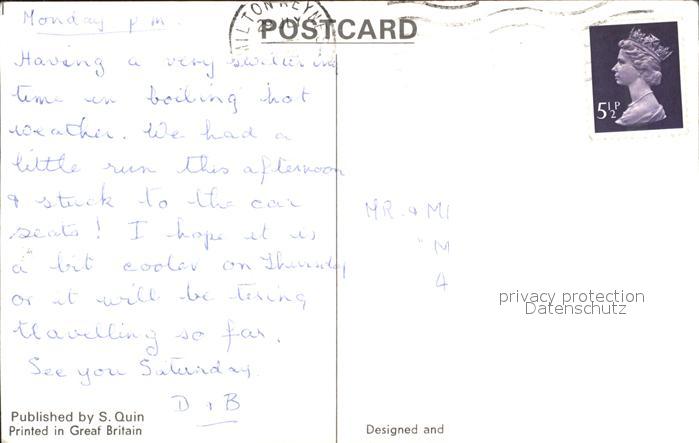 Monday pm.
MILTON KEYNES
POSTCARD
Having a very
time in boiling hot
weather. We had a
little run this afternoon
& stuck to the car
seats! I hope it is
a bit cooler on Thursday
or it will be tiring
travelling so far.
See you Saturday.
D & B
Published by S. Quin
Printed in Great Britain
5½P
MR. & M
" M
4
privacy protection
Datenschutz
Designed and